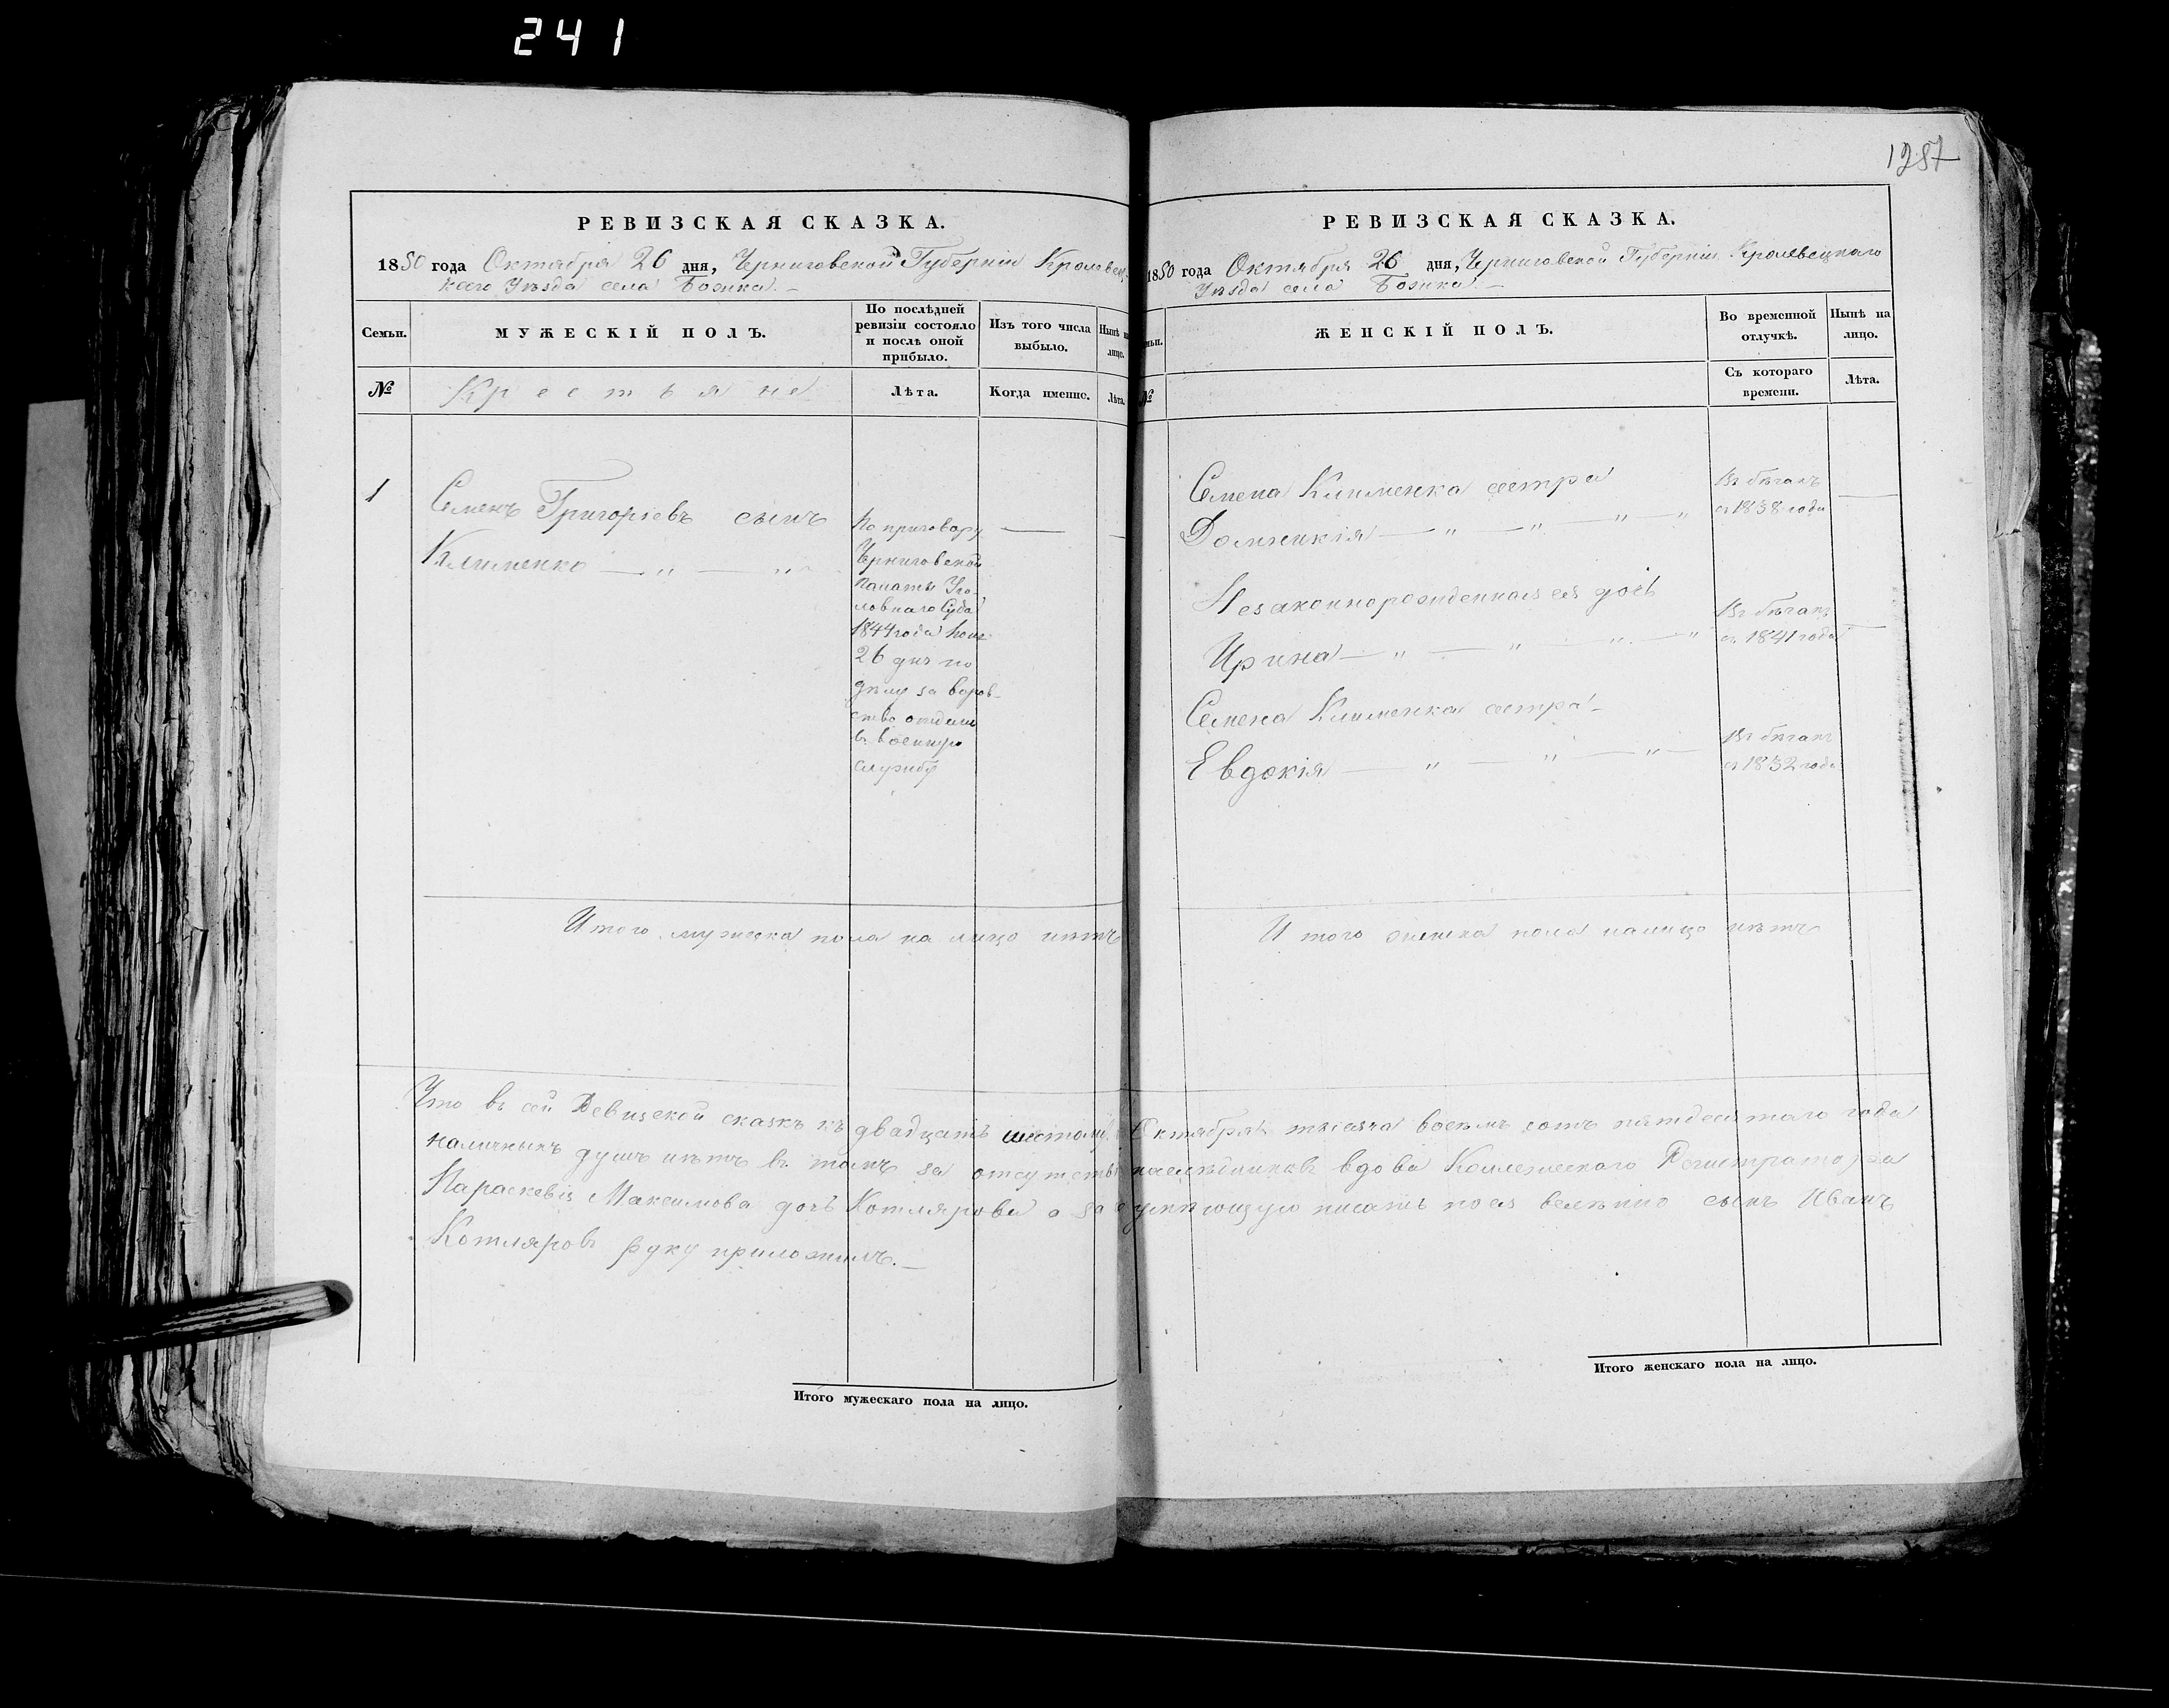 241
1257
РЕВИЗСКАЯ СКАЗКА.
1850 года Октября 26 дня, Черниговской Губерніи Кролевец-
каго Уѣзда села Божка.
Семьи.
МУЖЕСКІЙ ПОЛЪ.
По послѣдней
ревизіи состояло
и послѣ оной
прибыло.
Изъ того числа
выбыло.
Нынѣ на
лицо.
№
Крестьяне
Лѣта.
Когда именно.
Лѣта.
1
Семенъ Григоріевъ сынъ
Клименко — „ — „
По приговору
Черниговской
Палаты Уго-
ловнаго Суда
1844 года
26 дня по
дѣлу за воров-
ство отданъ
въ военную
службу
Итого мужеска пола на лицо нѣтъ
РЕВИЗСКАЯ СКАЗКА.
1850 года Октября 26 дня, Черниговской Губерніи Кролевецкаго
Уѣзда села Божка.
ЖЕНСКІЙ ПОЛЪ.
Во временной
отлучкѣ.
Нынѣ на
лицо.
№
Съ котораго
времени.
Лѣта.
Семена Клименка сестра
Домникія — „ — „ — „ — „
Въ бѣгахъ
съ 1838 года
Незаконнорожденная ея дочь
Ирина — „ — „ — „ — „
Въ бѣгахъ
съ 1841 года
Семена Клименка сестра
Евдокія — „ — „ — „ —
Въ бѣгахъ
съ 1832 года
Итого женска пола налицо нѣтъ
Что въ сей Ревизской сказкѣ къ двадцать шестому Октября тысяча восемь сотъ пятдесятаго года
наличныхъ душъ нѣтъ въ томъ за отсутствіемъ наслѣдниковъ вдова Коллежскаго Регистратора
Параскевія Максимова дочь Котлярова а за неумѣющую писать по ея велѣнію сынъ Иванъ
Котляровъ руку приложилъ.
Итого мужескаго пола на лицо.
Итого женскаго пола на лицо.